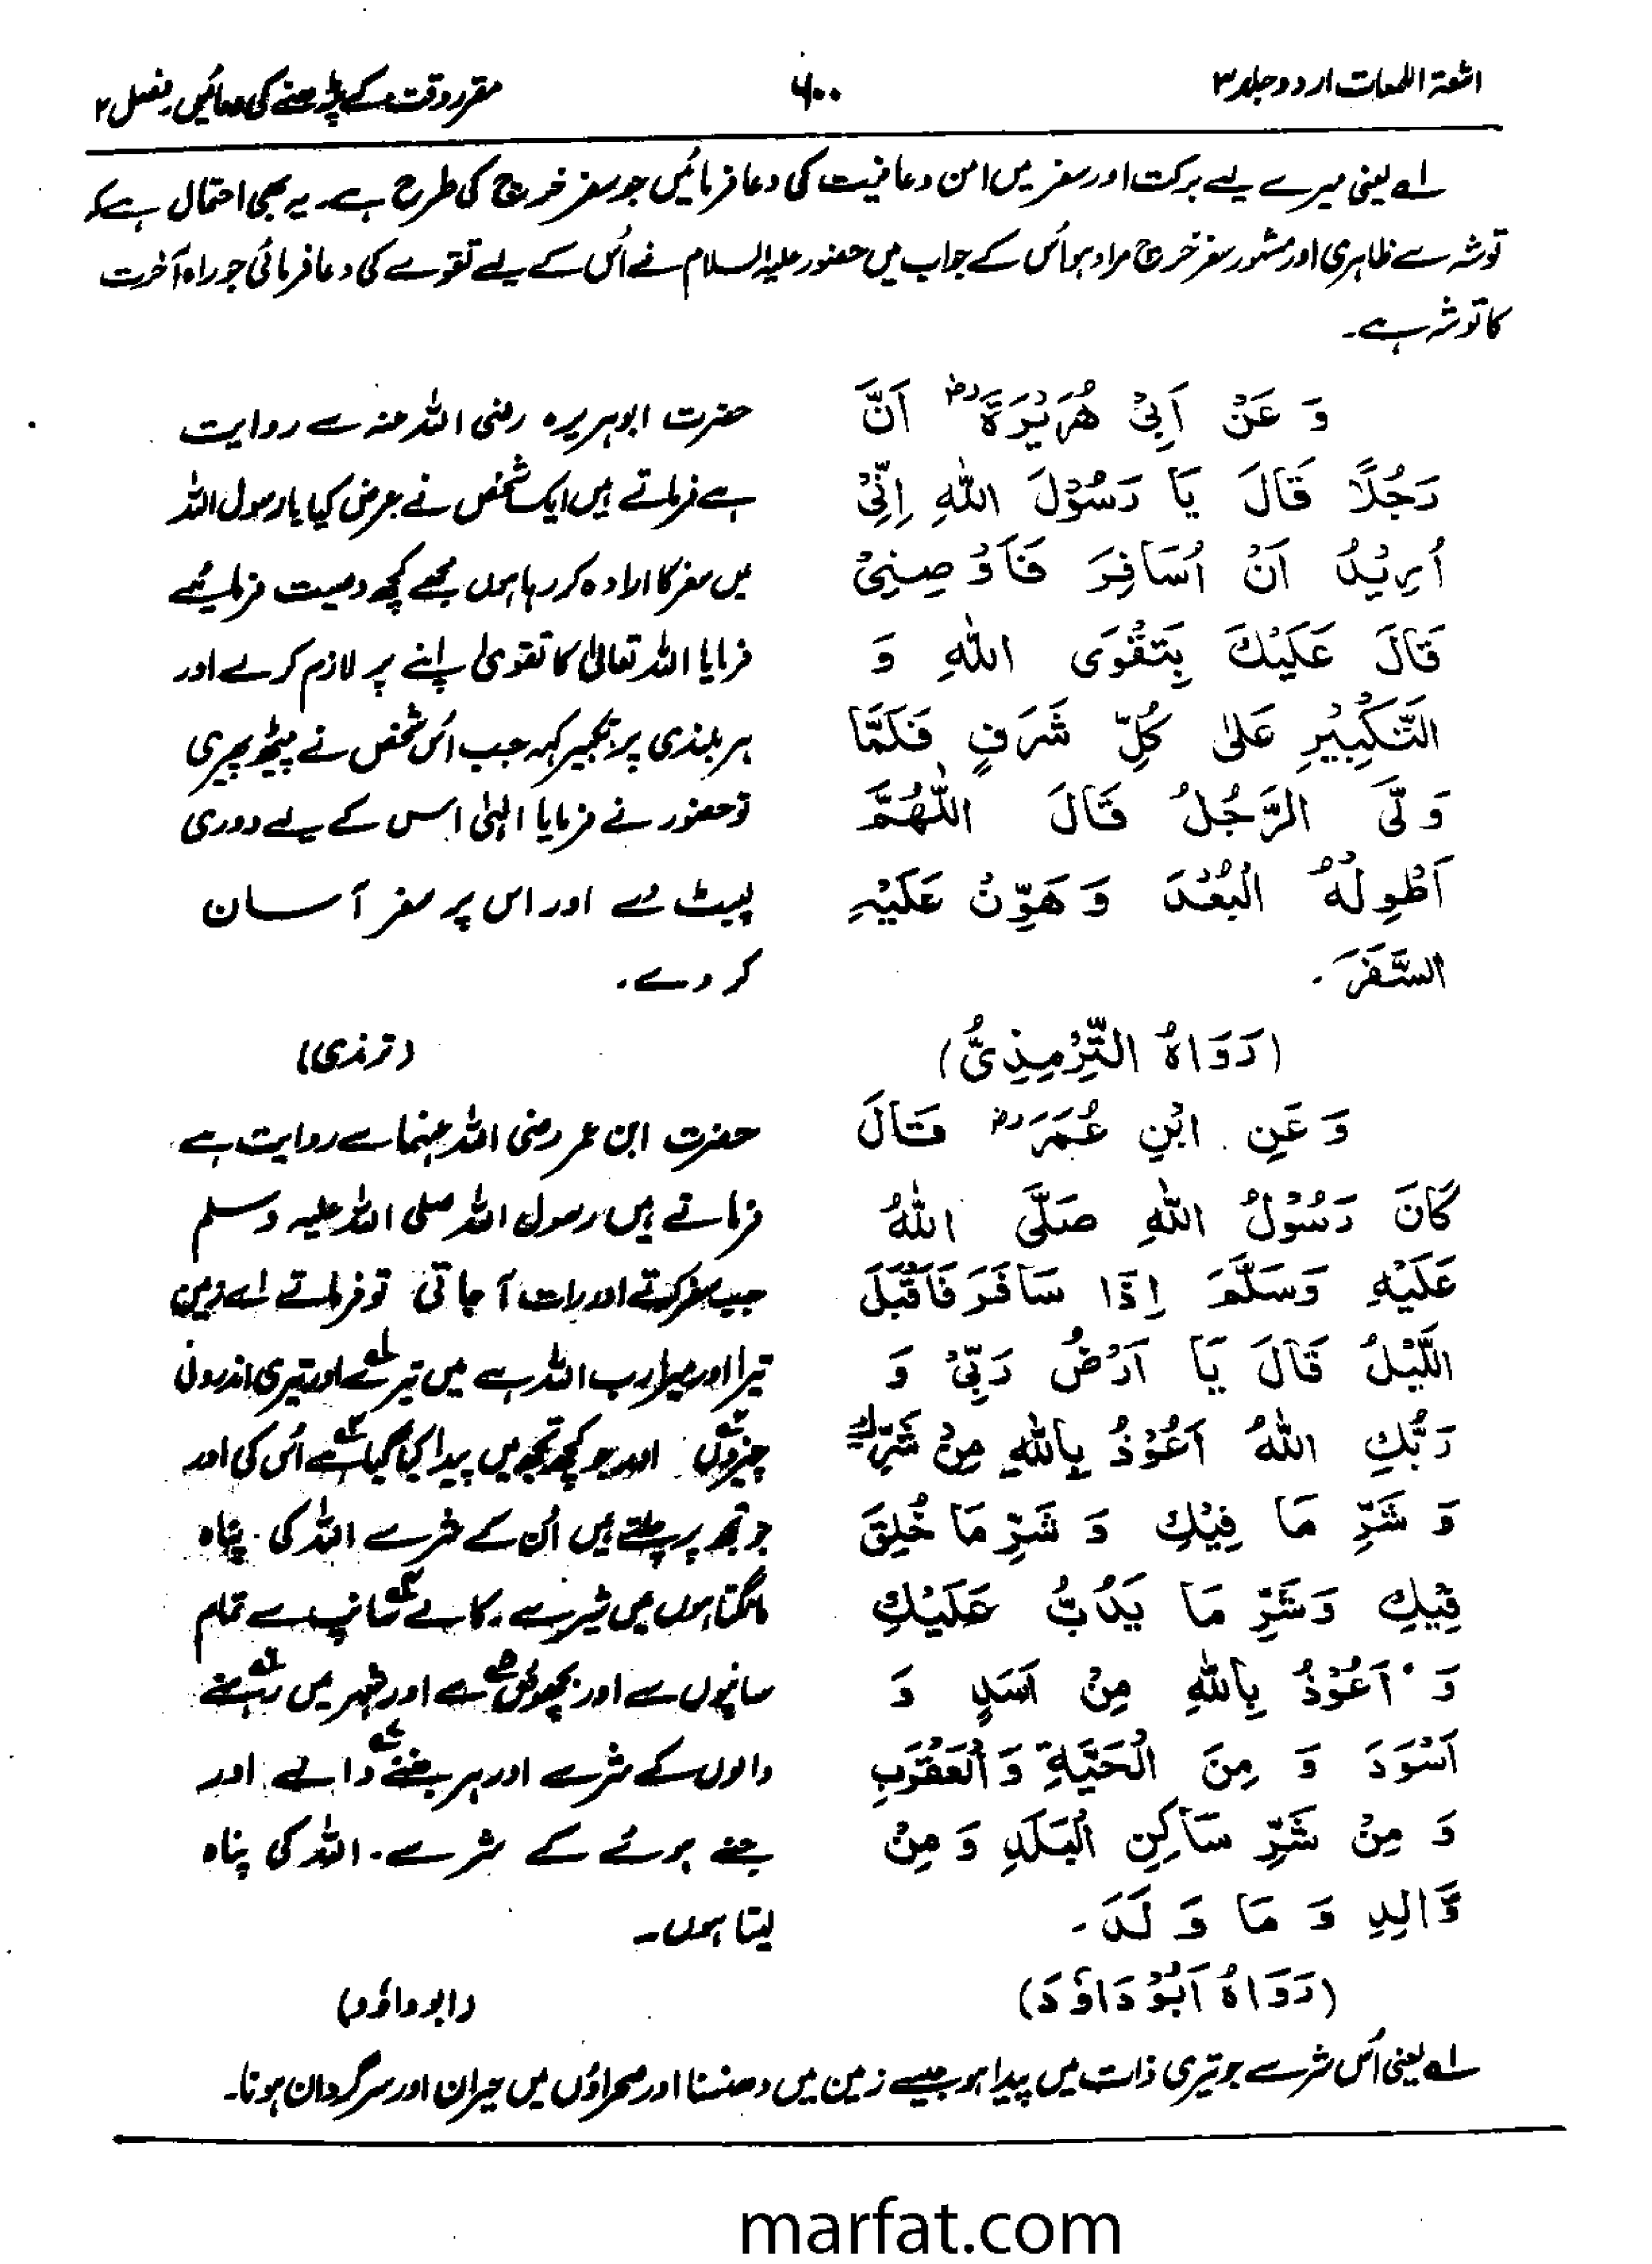 اشعۃ اللمعات اردو جلد ۳
۶۰۰
مقرر وقت کے پڑھنے کی دعائیں، فصل ۲
لے یعنی میرے لیے برکت اور سفر میں امن و عافیت کی دعا فرمائیں جو سفر خرچ کی طرح ہے۔ یہ بھی احتمال ہے کہ
توشہ سے ظاہری اور مشہور سفر خرچ مراد ہو اُس کے جواب میں حضور علیہ السلام نے اُس کے لیے تقوے کی دعا فرمائی جو راہ آخرت
کا توشہ ہے۔
وَ عَنْ اَبِیْ هُرَیْرَةَ رض اَنَّ
رَجُلًا قَالَ یَا رَسُوْلَ اللّٰهِ اِنِّیْ
اُرِیْدُ اَنْ اُسَافِرَ فَاَوْصِنِیْ
قَالَ عَلَیْكَ بِتَقْوَی اللّٰهِ وَ
التَّكْبِیْرِ عَلٰی كُلِّ شَرَفٍ فَلَمَّا
وَلَّی الرَّجُلُ قَالَ اللّٰهُمَّ
اَطْوِلَهُ الْبُعْدَ وَ هَوِّنْ عَلَیْهِ
السَّفَرَ ۔
(رَوَاهُ التِّرْمِذِیُّ)
حضرت ابوہریرہ رضی اللہ عنہ سے روایت
ہے فرماتے ہیں ایک شخص نے عرض کیا یا رسول اللہ
میں سفر کا ارادہ کر رہا ہوں مجھے کچھ وصیت فرمایئے
فرمایا اللہ تعالیٰ کا تقویٰ اپنے پر لازم کرے اور
ہر بلندی پر تکبیر کہہ جب اُس شخص نے پیٹھ پھیری
تو حضور نے فرمایا الٰہی اس کے لیے دوری
لپیٹ دے اور اس پر سفر آسان
کر دے ۔
(ترمذی)
وَ عَنِ ابْنِ عُمَرَ رض قَالَ
كَانَ رَسُوْلُ اللّٰهِ صَلَّی اللّٰهُ
عَلَیْهِ وَسَلَّمَ اِذَا سَافَرَ فَاَقْبَلَ
اللَّیْلُ قَالَ یَا اَرْضُ رَبِّیْ وَ
رَبُّكِ اللّٰهُ اَعُوْذُ بِاللّٰهِ مِنْ شَرِّكِ
وَ شَرِّ مَا فِیْكِ وَ شَرِّ مَا خُلِقَ
فِیْكِ وَشَرِّ مَا یَدُبُّ عَلَیْكِ
وَ اَعُوْذُ بِاللّٰهِ مِنْ اَسَدٍ وَ
اَسْوَدَ وَ مِنَ الْحَیَّةِ وَالْعَقْرَبِ
وَ مِنْ شَرِّ سَاكِنِ الْبَلَدِ وَ مِنْ
وَّالِدٍ وَ مَا وَلَدَ ۔
(رَوَاهُ اَبُوْ دَاوٗدَ)
حضرت ابن عمر رضی اللہ عنہما سے روایت ہے
فرماتے ہیں رسول اللہ صلی اللہ علیہ وسلم
جب سفر کرتے اور رات آ جاتی تو فرماتے اے زمین
تیرا اور میرا رب اللہ ہے میں تیرے اور تیری اندرونی
چیزوں اور جو کچھ تجھ میں پیدا کیا گیا ہے اُس کی اور
جو تجھ پر چلتے ہیں اُن کے شر سے اللہ کی پناہ
مانگتا ہوں میں شیر سے، کالے سانپ سے تمام
سانپوں سے اور بچھوؤں سے اور شہر میں رہنے
والوں کے شر سے اور ہر جننے والے اور
جنے ہوئے کے شر سے ۔ اللہ کی پناہ
لیتا ہوں ۔
(ابو داؤد)
لے یعنی اُس شر سے جو تیری ذات میں پیدا ہو جیسے زمین میں دھنسنا اور صحراؤں میں حیران اور سرگردان ہونا۔
marfat.com